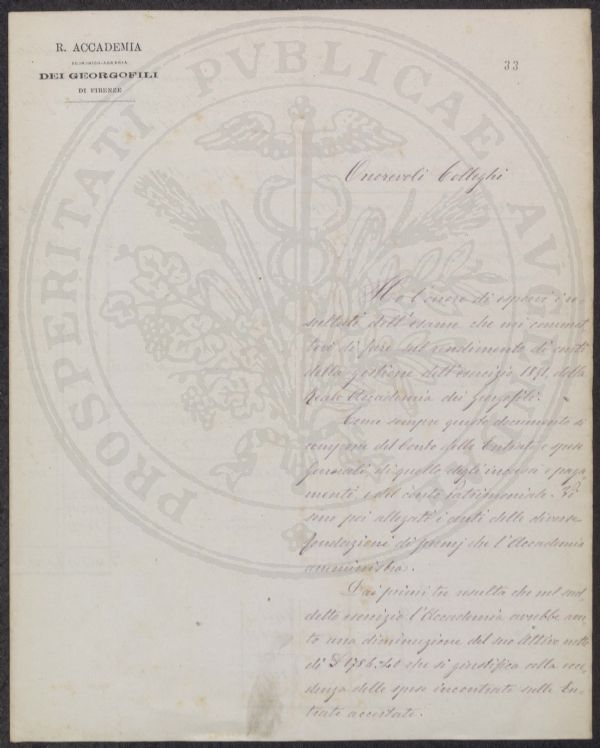 R. ACCADEMIA
ECONOMICO-AGRARIA
DEI GEORGOFILI
DI FIRENZE
33
PROSPERITATI PUBLICAE AUG
Onorevoli Colleghi
Ho l'onore di esporvi i re
sultati dell'esame che mi commet
teste di fare sul rendimento di conti
della gestione dell'esercizio 1891 della
Reale Accademia dei Georgofili.
Come sempre questo documento si
compone del Conto delle Entrate e spese
di quello degli incassi e paga
menti, e del conto patrimoniale. Vi
sono poi allegati i conti delle diverse
fondazioni di premj che l'Accademia
amministra.
Dai primi tre resulta che nel sud
detto esercizio l'Accademia avrebbe avu
to una diminuzione del suo Attivo netto
di che si giustifica colla ecce
denza delle spese incontrate sulle En
trate accertate.